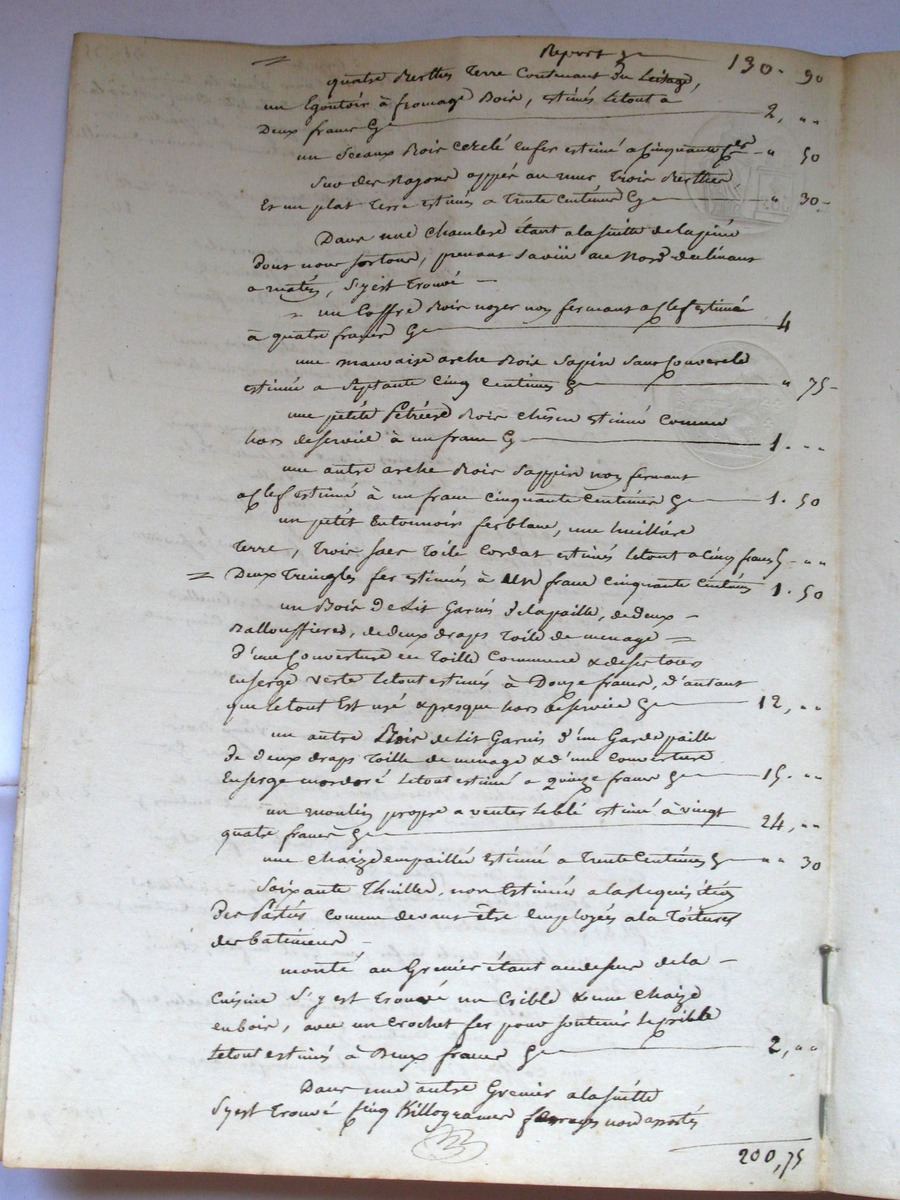 Report 130. 90
quatre Berthes Terre Contenant du Leitage,
un Egoutoir à fromage Bois, estimés letout a
Deux francs 2, ""
un Sceaux Bois cerclé enfer estimé a Cinquante Ces " 50
Sur des Rayons appés au mur Trois Berthes
Et un plat Terre estimés a Trente Centimes " 30
Dans une Chambre étant alasuitte de lapiéce
Dont nous sortons, prenant saviie au Nord
a matin, S'yest Trouvé
un Coffre Bois noyer non fermant aclef estimé
à quatre francs 4
une mauvaise arche Bois Sapin Sans Couvercle
estimée a Septante Cinq Centimes " 75
une petite Pétriere Bois chêne estimé Comme
hors deservice à un franc 1. ""
une autre arche Bois Sappin non fermant
aclef estimé à un franc Cinquante Centimes 1. 50
un petit Entonnoir ferblanc, une huilliére
Terre, Trois Sacs Toile Cordat estimés letout a Cinq francs 5 ""
Deux Tringles fer estimés à un franc cinquante Centimes 1. 50
un Bois de Lit Garnis delapaille, dedeux
Balouffieres, dedeux draps Toile de menage
d'une Couverture en Toille Commune & desertours
enserge verte letout estimés à Douze francs, d'autant
que letout Est usé & presque hors deservice 12, ""
un autre Bois de Lit Garnis d'un Gardepaille
de deux draps Toille de menage & d'une Couverture
Enserge mordoré letout estimé a quinze francs 15. ""
un moulin propre a venter leblé estimé à vingt
quatre francs 24, ""
une Chaize empaillée estimée a Trente Centimes "" 30
Soixante Thuilles, non Estimées alarequisition
Des Parties comme devant être Employées ala Toitures
des batiments
monté au Grenier étant audessus dela
Cuisine S'y est trouvé un Crible & une Chaize
enbois, avec un Crochet fer pour soutenir le crible
letout estimés à Deux francs 2, ""
Dans une autre Grenier alasuitte
Syest Trouvé Cinq Killogrames non aportés
200,75